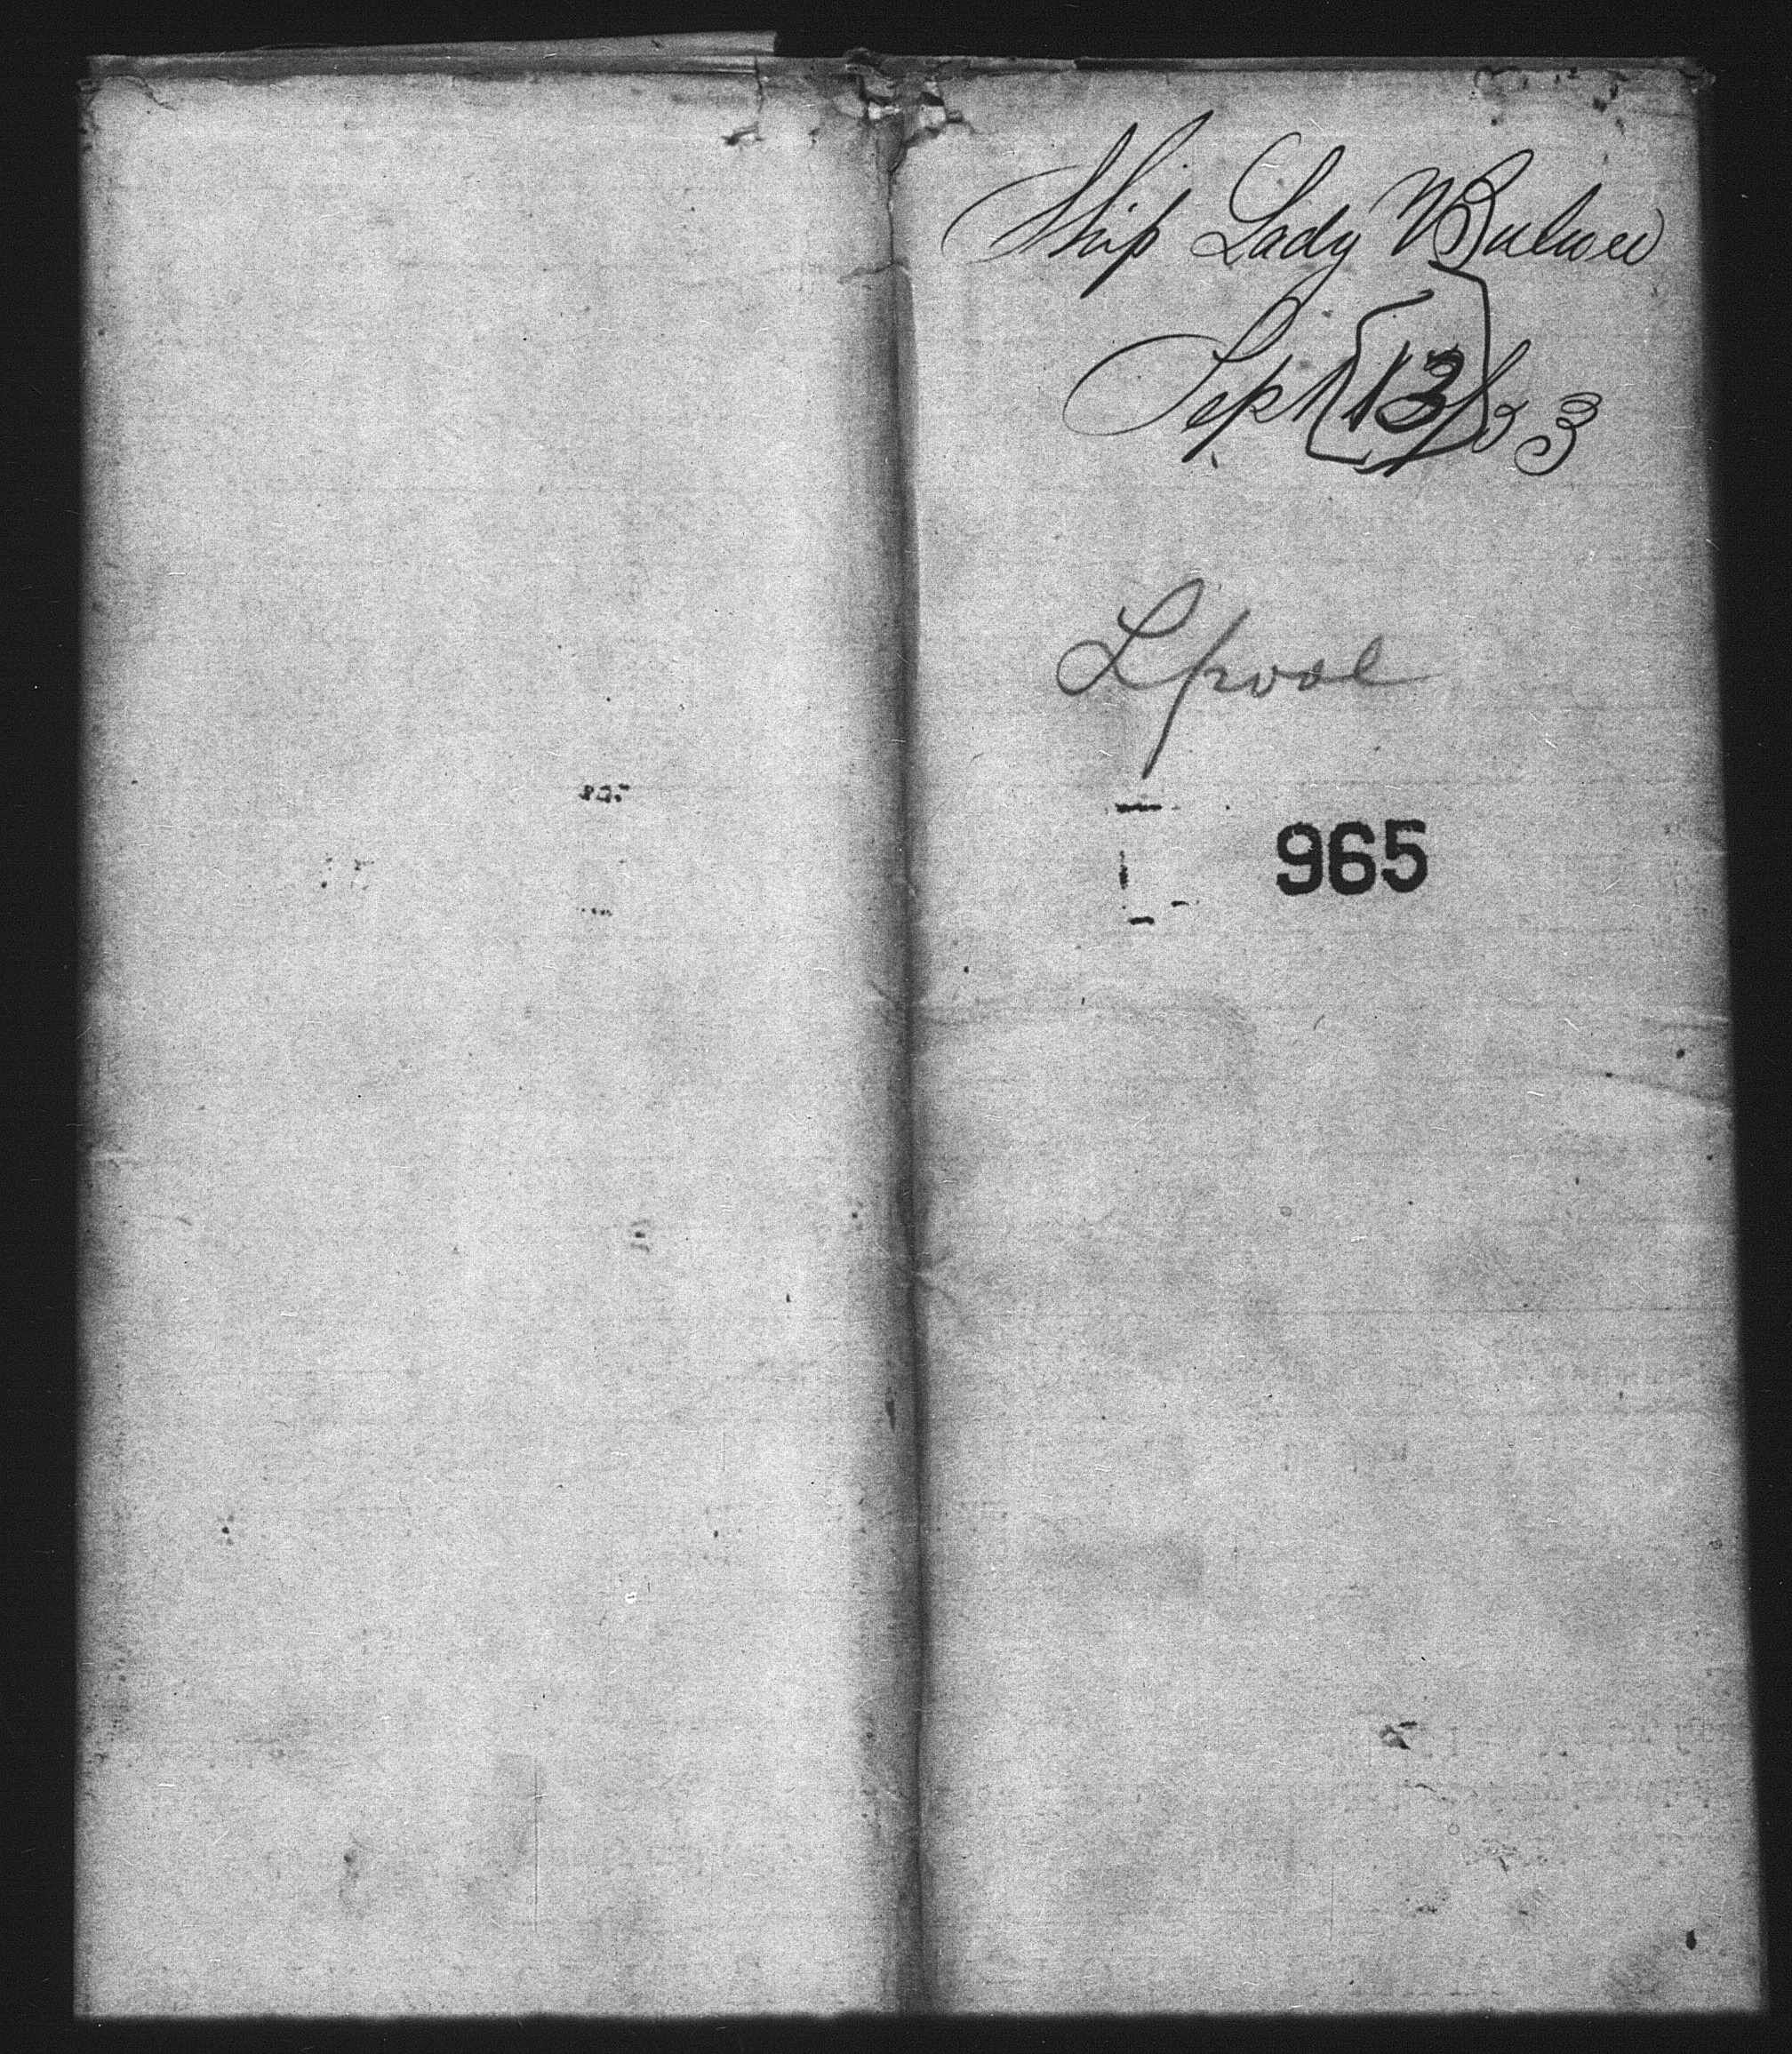 Ship Lady Bulwer
Sept 13/53
Lpool
965